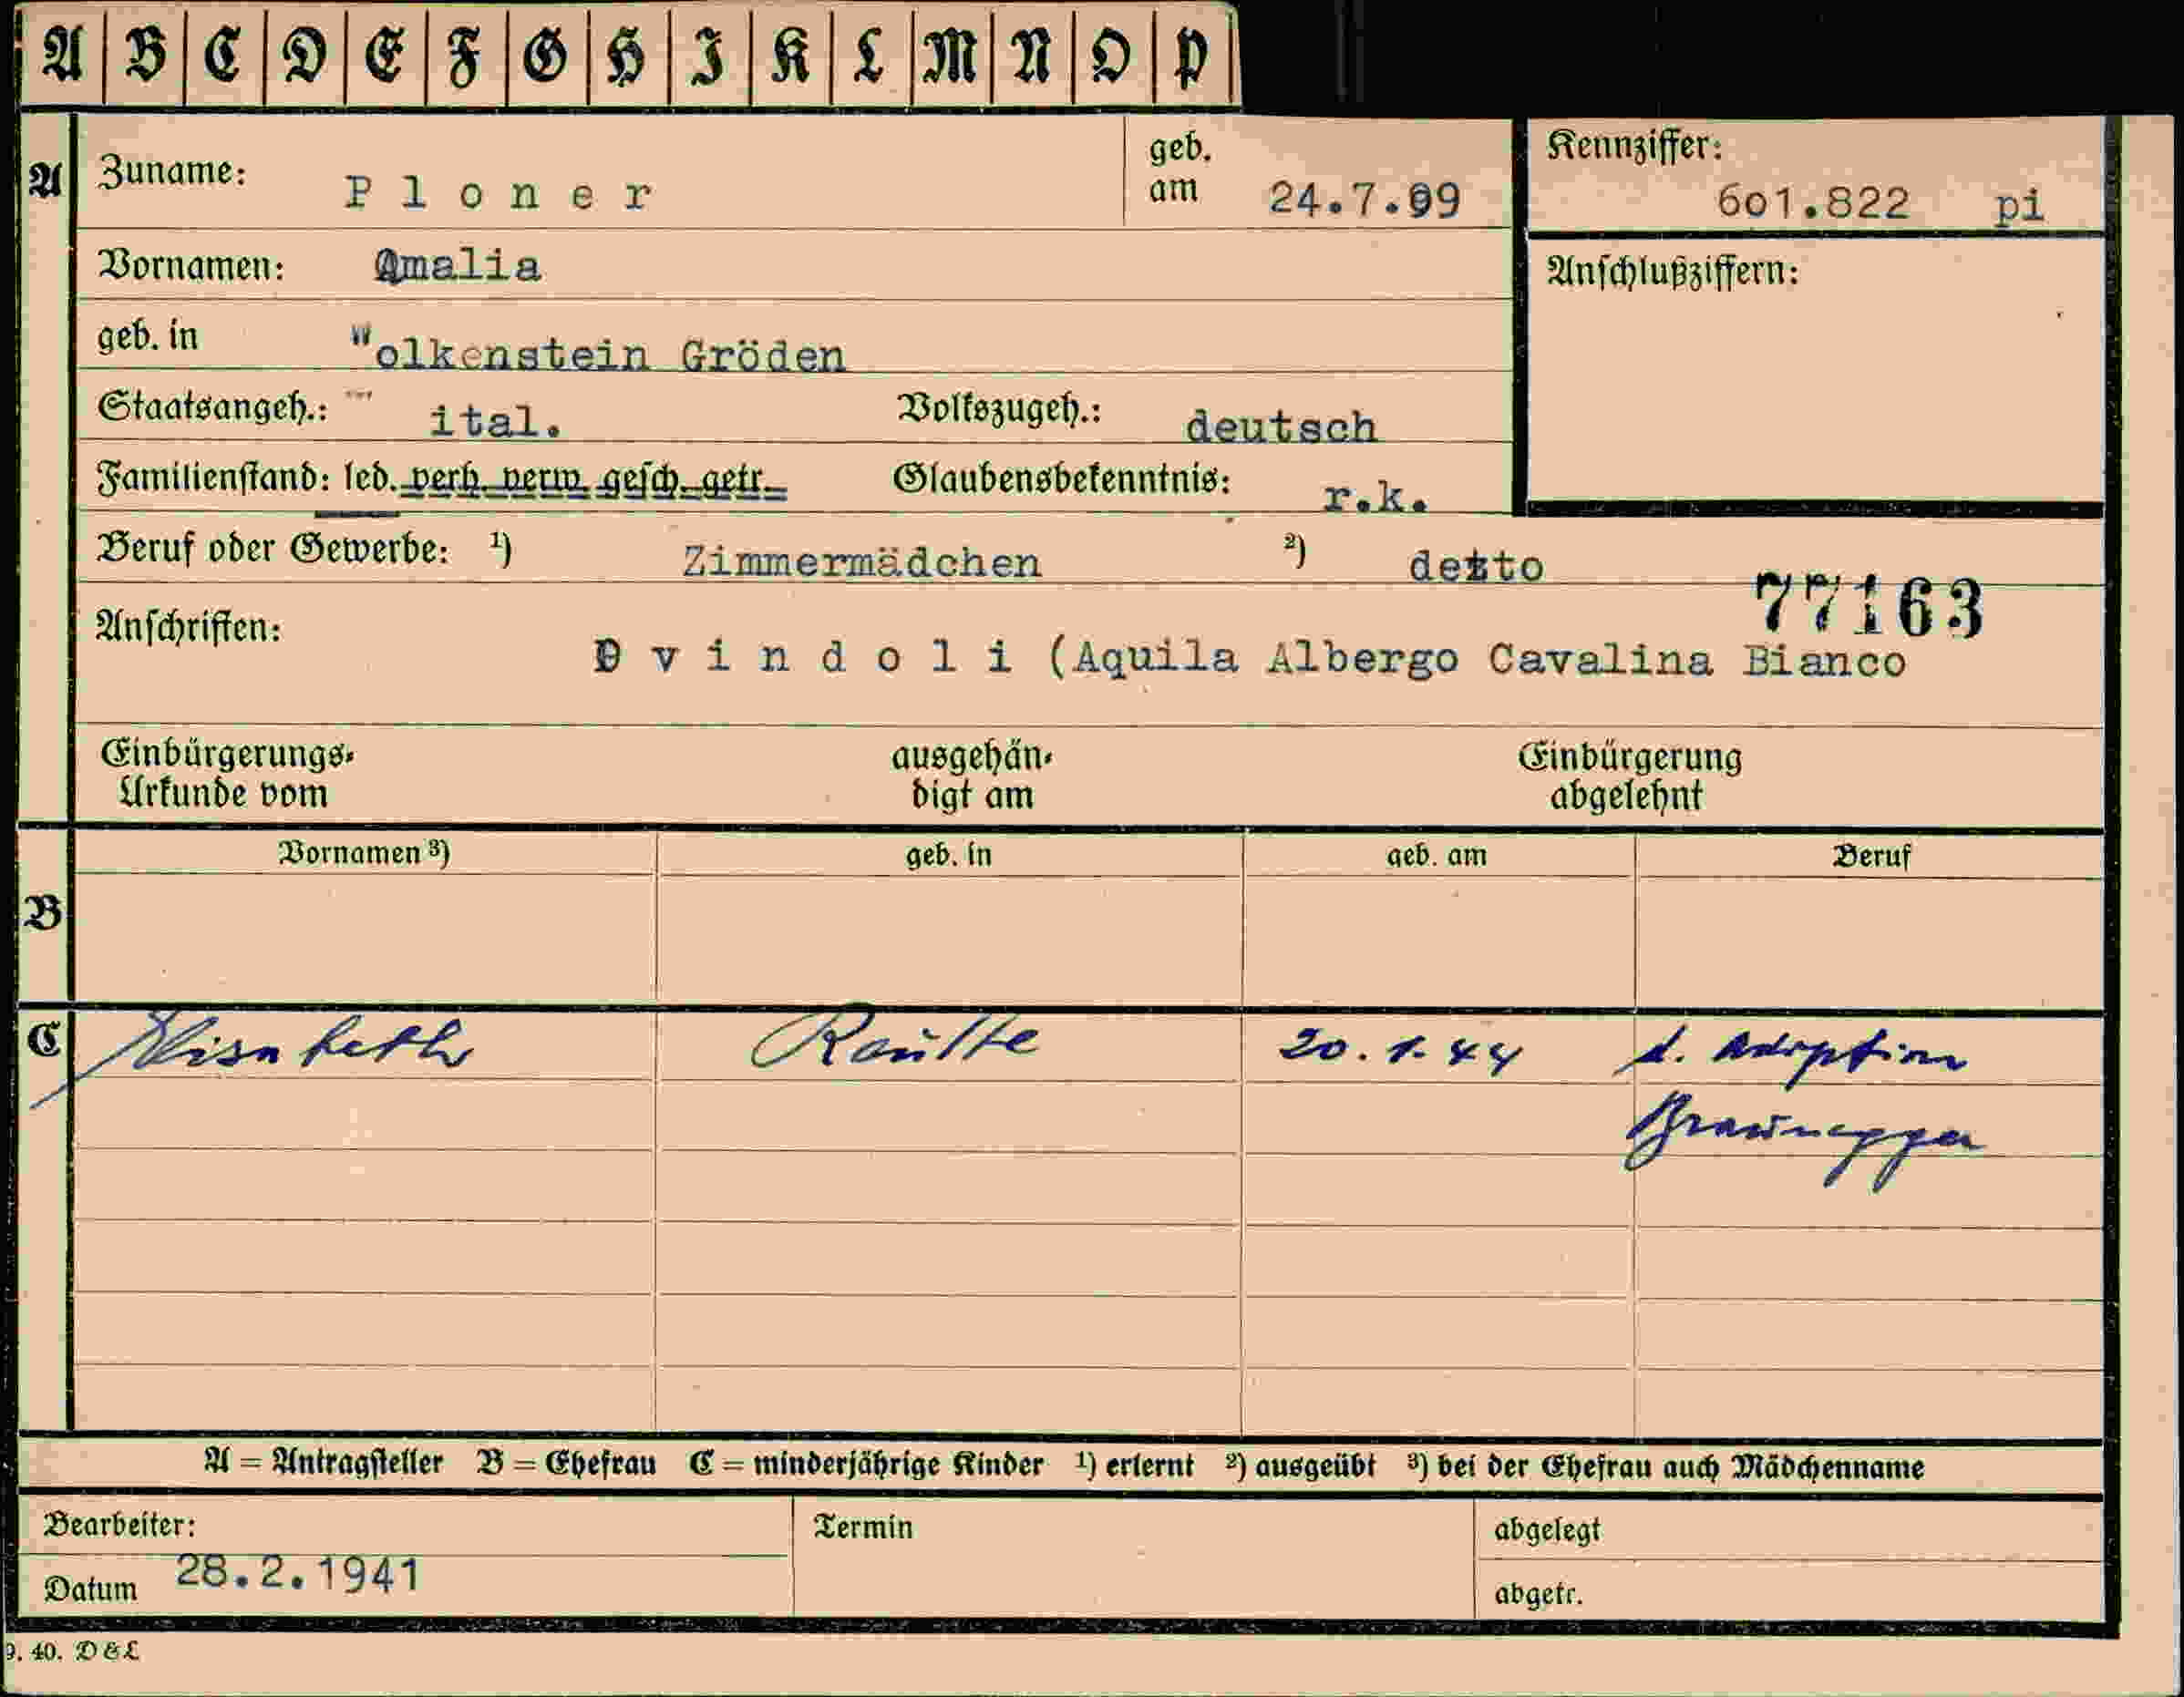 A B C D E F G H I K L M N O P
A
Zuname: Ploner
geb. am 24.7.99
Kennziffer: 601.822 pi
Vornamen: Amalia
Anschlußziffern:
geb. in Wolkenstein Gröden
Staatsangeh.: ital. Volkszugeh.: deutsch
Familienstand: led. verh. verw. gesch. getr. Glaubensbekenntnis: r.k.
Beruf oder Gewerbe: ¹) Zimmermädchen ²) detto
77163
Anschriften:
Ovindoli (Aquila Albergo Cavalina Bianco
Einbürgerungs-Urkunde vom ausgehändigt am Einbürgerung abgelehnt
Vornamen ³) geb. in geb. am Beruf
B
C Elisabeth Reutte 20.1.44 d. Adoption
Braunegger
A = Antragsteller B = Ehefrau C = minderjährige Kinder ¹) erlernt ²) ausgeübt ³) bei der Ehefrau auch Mädchenname
Bearbeiter: Termin abgelegt
Datum 28.2.1941 abgetr.
9. 40. D & L